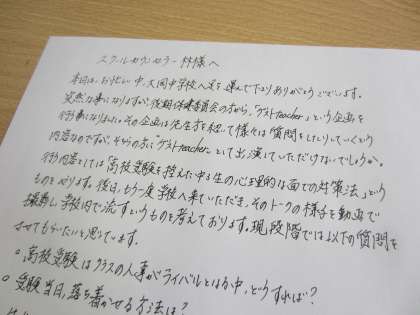 スクールカウンセラー 林様へ
本日は、お忙しい中、大岡中学校へ足を運んで下さりありがとうございます。
突然な事になりますが、後期保健委員会の方から、「ゲストteacher」という企画を
行う事になりました。その企画は先生方を招いて様々な質問をしたりしていくという
内容なのですが、そちらの方に「ゲストteacher」として出演していただけないでしょうか。
行う内容としては「高校受験を控えた中3生の心理的な面での対策法」という
ものをやります。後日、もう一度学校へ来ていただき、そのトークの様子を動画で
撮影し学校内で流すというものを考えております。現段階では以下の質問を
させてもらいたいと思っています。
○高校受験はクラスの人事がライバルとなる中、どうすれば?
○受験当日、落ち着かせる方法は?